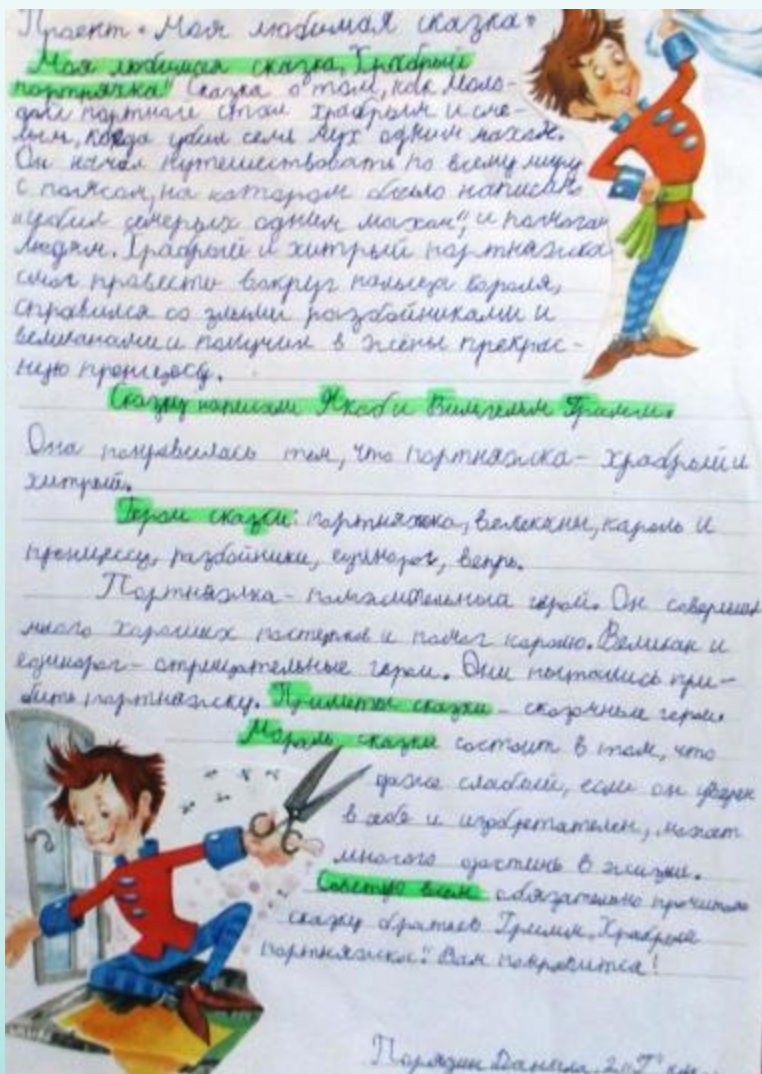 Проект «Моя любимая сказка»
Моя любимая сказка „Храбрый
портняжка“. Сказка о том, как моло-
дой портной стал храбрым и сме-
лым, когда убил семь мух одним махом.
Он начал путешествовать по всему миру
с поясом, на котором было написано
„убил семерых одним махом“, и помогал
людям. Храбрый и хитрый портняжка
смог провести вокруг пальца короля,
справился со злыми разбойниками и
великанами и получил в жёны прекрас-
ную принцессу.
Сказку написали Якоб и Вильгельм Гримм.
Она понравилась тем, что портняжка - храбрый и
хитрый.
Герои сказки: портняжка, великаны, король и
принцесса, разбойники, единорог, вепрь.
Портняжка - положительный герой. Он совершил
много хороших поступков и помог королю. Великан и
единорог - отрицательные герои. Они пытались при-
бить портняжку. Приметы сказки - сказочные герои.
Мораль сказки состоит в том, что
даже слабый, если он уверен
в себе и изобретателен, может
многого достичь в жизни.
Советую всем обязательно прочитать
сказку братьев Гримм „Храбрый
портняжка“. Вам понравится!
Данила, 2